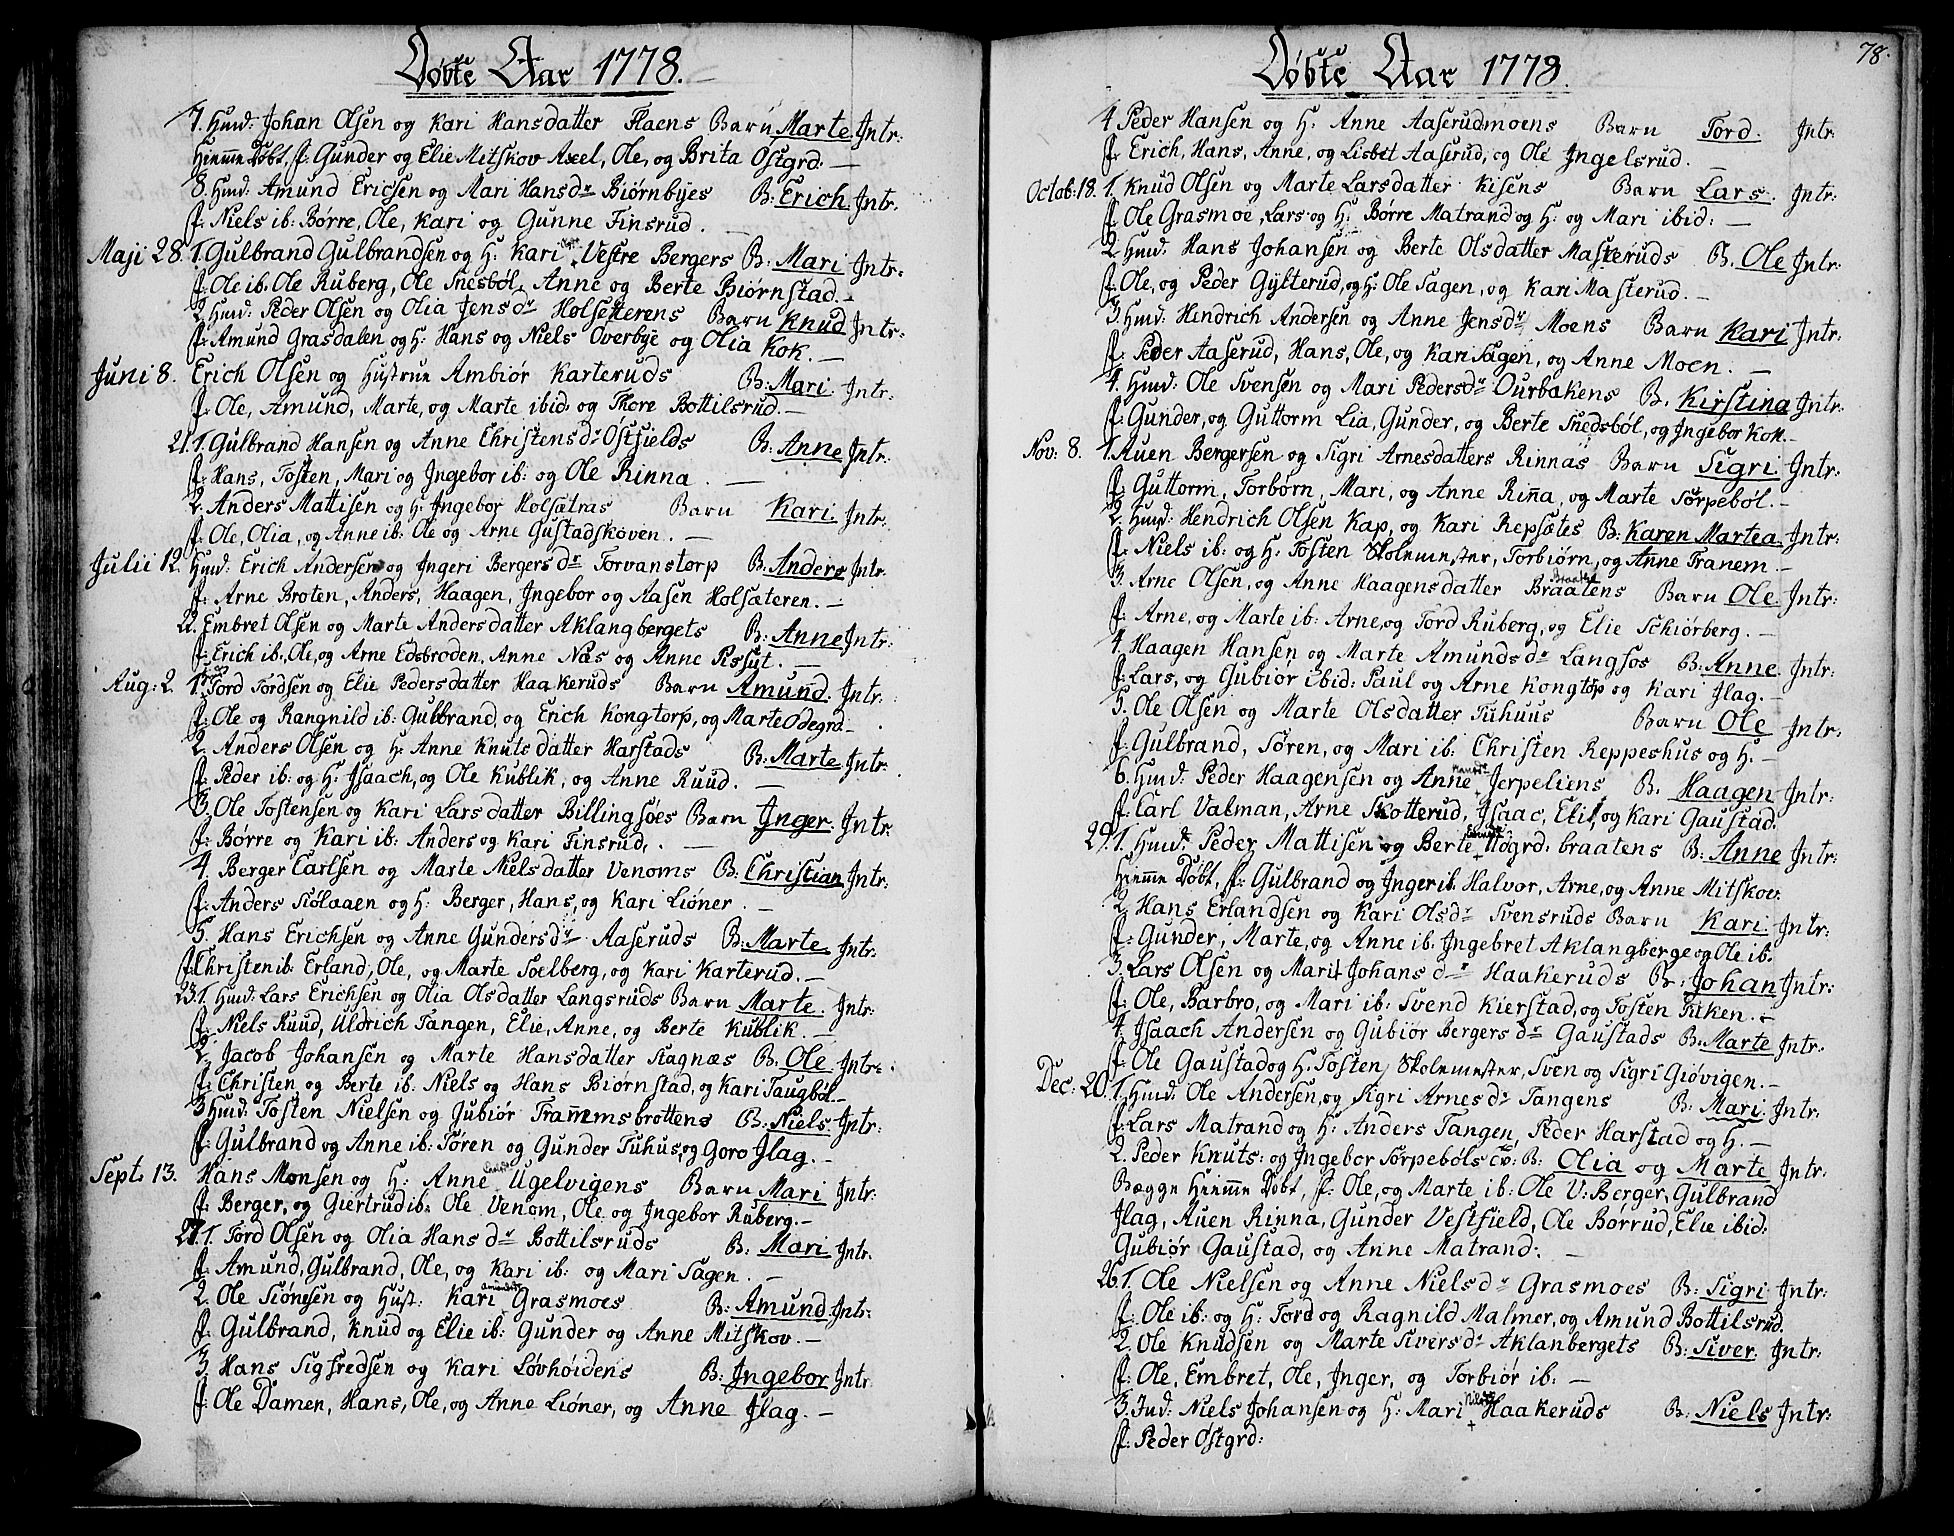 Döbte Aar 1778.
7. Huusd: Johan Olsen og Kari Hansdatter Flaens Barn Marte Jntr:
Hiemme Döbt, f: Gunder og Elie Mitskov Axel, Ole, og Brita Ostgrd. —
8. Huusd: Amund Ericsen og Mari Hansdr Biörnbyes B: Erich. Jntr.
f: Niels ib: Börre, Ole, Kari og Gunne Finsrud.
Maji 28. 1. Gulbrand Gulbrandsen og H: Kari Vestre Bergers B: Mari Jntr:
f: Ole ib. Ole Ruberg, Ole Snesböl, Anne og Berte Biörnstad. —
2. Huusd: Peder Olsen og Olia Jensdr Holseterens Barn Knud Jntr:
f: Amund Grasdalen og H: Hans og Niels Overbye og Olia Kok. —
Juni 8. Erich Olsen og Hustrue Ambiör Karteruds B: Mari. Jntr:
f: Ole, Amund, Marte, og Marte ibid: og Thore Bottilsrud. —
21. 1. Gulbrand Hansen og Anne Christensdr Ostfields B: Anne Jntr:
f: Hans, Tosten, Mari og Ingebor ib: og Ole Rinna. —
2. Anders Mattisen og H: Jngebor Holsatras Barn Kari. Jntr:
f: Ole, Olia, og Anne ib: Ole og Arne Gustadskoven. —
Julii 12. Huusd: Erich Andersen og Jngeri Bergersdr Torvanstorp B: Anders Jntr.
f: Arne Broten, Anders, Haagen, Jngebor og Aasen Holsæteren. —
22. Embret Olsen og Marte Andersdatter Aklangbergets B: Anne Jntr:
f: Erich ib., Ole, og Arne Edsbroden, Anne Næs og Anne
Aug: 2. 1. Tord Tordsen og Elie Pedersdatter Haakeruds Barn Amund. Jntr:
f: Ole og Rangnild ib: Gulbrand og Erich Kongtorp, og Marte Ödegrd.
2. Anders Olsen og H: Anne Knutsdatter Harstads B: Marte Jntr:
f: Peder ib: og H: Jsaach, og Ole Kublik, og Anne Ruud. —
3. Ole Tostensen og Kari Larsdatter Billingsöes Barn Jnger. Jntr
f: Börre og Kari ib: Anders og Kari Finsrud. —
4. Berger Carlsen og Marte Nielsdatter Venoms B: Christian Jntr:
f: Anders Siölaaen og H: Berger, Hans, og Kari Liöner. —
5. Hans Erichsen og Anne Gundersdr Aaseruds B: Marte Jntr:
f: Christen ib: Erland, Ole, og Marte Soelberg, og Kari Karterud. —
23. 1. Huusd: Lars Erichsen og Olia Olsdatter Langsruds Barn Marte. Jntr:
f: Niels Ruud, Uldrich Tangen, Elie, Anne, og Berte Kublik. —
2. Jacob Johansen og Marte Hansdatter Skagnæs B. Ole. Jntr:
f: Christen og Berte ib: Niels og Hans Biörnstad, og Kari Taugböl. —
3 Huusd: Tosten Nielsen og Gubiör Trammsbrottens B: Niels. Jntr:
f: Gulbrand og Anne ib: Sören og Gunder Tuhus, og Goro Jlag. —
Sept: 13. Hans Monsen og H: Anne Ugelvigens Barn Mari Jntr:
f: Berger, og Giertrud ib: Ole Venom, Ole og Jngebor Ruberg. —
27. 1. Tord Olsen og Olia Hansdr Bottilsruds B: Mari Jntr.
f: Amund, Gulbrand, Ole, og Kari ib: og Mari Sagen. —
2. Ole Siönesen og Hust: Kari Grasmoes B: Amund. Jntr:
f: Gulbrand, Knud og Elie ib: Gunder og Anne Mitskov. —
3. Hans Sigfredsen og Kari Lövhöidens B: Jngebor Jntr:
f: Ole Damen, Hans, Ole, og Anne Liöner, og Anne Jlag. —
78.
Döbte Aar 1778.
4 Peder Hansen og H: Anne Aaserudmoens Barn Tord. Jntr:
f: Erich, Hans, Anne, og Lisbet Aaserud, og Ole Jngelsrud. —
Octob: 18. 1. Knud Olsen og Marte Larsdatter Kisens Barn Lars. Jntr:
f: Ole Grasmoe, Lars og H: Börre Matrand og H: og Mari ibid: —
2 Huusd: Hans Johansen og Berte Olsdatter Masteruds B. Ole Jntr:
f: Ole, og Peder Gylterud, og H: Ole Sagen, og Kari Masterud. —
3 Huusd: Hindrich Andersen og Anne Jensdr Moens Barn Kari Jntr:
f: Peder Aaserud, Hans, Ole, og Kari Sagen, og Anne Moen. —
4. Huusd: Ole Svensen og Mari Pedersdr Ourbakens B. Kirstina Jntr:
f: Gunder, og Guttorm Lia, Gunder, og Berte Snedsböl, og Jngebor Kok. —
Nov: 8. 1. Auen Bergersen og Sigri Arnesdatters Rinnas Barn Sigri Jntr:
f: Guttorm, Torbörn, Mari, og Anne Rinna, og Marte Sörpeböl. —
2. Huusd: Hendrich Olsen Kap, og Kari Repsætes B: Karen Martea. Jntr:
f: Niels ib: og H: Tosten Skolemester, Torbiörn, og Anne Tranem. —
3. Arne Olsen, og Anne Haagensdatter Braatens Barn Ole Jntr:
f: Arne, og Marte ib: Arne, og Tord Ruberg, og Elie Schiörberg. —
4. Haagen Hansen og Marte Amundsdr Langsös B: Anne Jntr:
f: Lars, og Gubiör ibid: Paul og Arne Kongtorp og Kari Jlag. —
5. Ole Olsen og Marte Olsdatter Tuhuus Barn Ole Jntr:
f: Gulbrand, Sören, og Mari ib: Christen Reppeshus og H: —
6. Huusd: Peder Haagensen og Anne Jerpeliens B. Haagen Jntr:
f: Carl Valman, Arne Skotterud, Jsaac, Eli, og Kari Gaustad.
29. 1. Huusd: Peder Mattisen og Berte Ödgrd: braatens B: Anne Jntr:
Hiemme Döbt, f: Gulbrand og Jnger ib. Halvor, Arne, og Anne Mitskov.
2. Hans Erlandsen og Kari Olsdr Svensruds Barn Kari. Jntr:
f: Gunder, Marte, og Anne ib: Jngebret Aklangberge og Ole ib.
3. Lars Olsen og Marit Johansdr Haakeruds B: Johan Jntr:
f: Ole, Barbro, og Mari ib: Svend Kierstad, og Tosten Fiken. —
4. Jsaach Andersen og Gubiör Bergersdr Gaustads B: Marte Jntr:
f: Ole Gaustad og H. Tosten Skolemester, Sven og Sigri Giövigen. —
Dec: 20. 1. Huusd: Ole Andersen, og Sigri Arnesdr Tangens B: Mari Jntr:
f: Lars Matrand og H: Anders Tangen, Peder Harstad og H. —
2. Peder Knuts: og Jngebor Sörpeböls B: Olia og Marte Jntr:
Bægge Hiemme Döbt, f: Ole, og Marte ib: Ole V: Berger, Gulbrand
Jlag, Auen Rinna, Gunder Vestfield, Ole Börrud, Elie ibid:
Gubiör Gaustad, og Anne Matrand: —
26. 1. Ole Nielsen og Anne Nielsdr Grasmoes B: Sigri Jntr:
f: Ole ib: og H: Tord og Ragnild Malmer, og Amund Bottilsrud.
2. Ole Knudsen og Marte Siversdr Aklanbergets B: Siver. Jntr:
f: Ole, Embret, Ole, Jnger, og Torbiör ib: —
3. Jnd: Niels Johansen og H: Mari Haakeruds B: Niels Jntr:
f: Peder Östgrd: